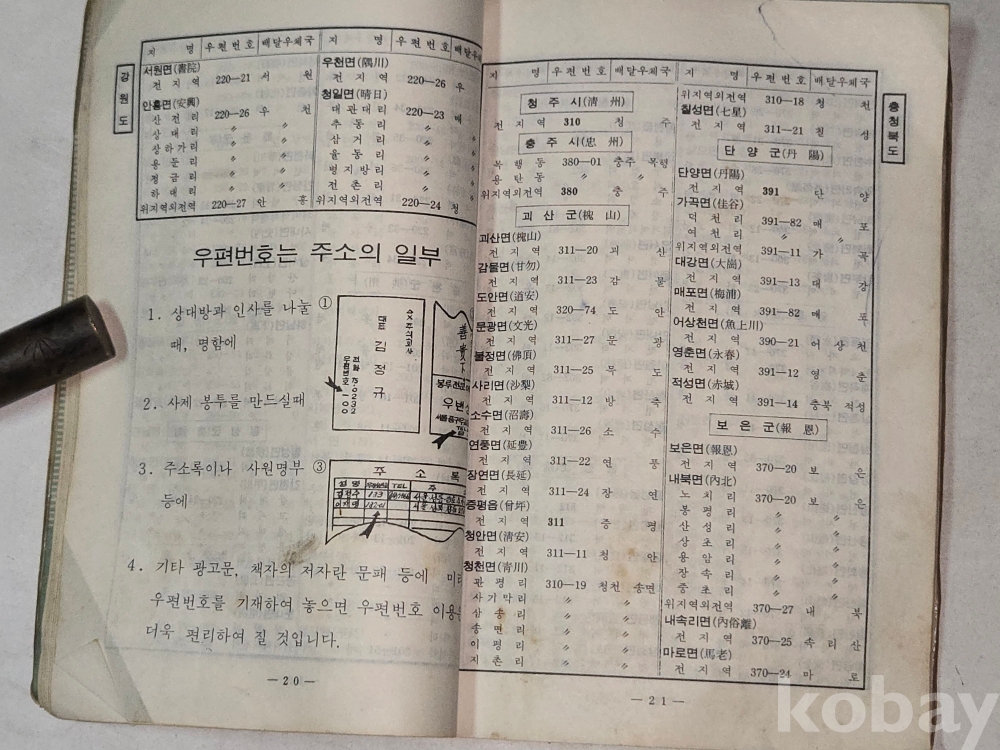 강원도
지 명 우편번호 배달우체국 지 명 우편번호 배달우
서원면(書院)
전지역 220—21 서원
안흥면(安興)
산전리 220—26 우천
상대리 〃 〃
상하가리 〃 〃
용둔리 〃 〃
정금리 〃 〃
하대리 〃 〃
위지역외전역 220—27 안흥
우천면(隅川)
전지역 220—26 우
청일면(晴日)
대관대리 220—23 매
추동리 〃
삼거리 〃
율동리 〃
병지방리 〃
전촌리 〃
위지역외전역 220—24 청
우편번호는 주소의 일부
1. 상대방과 인사를 나눌
때, 명함에
①
주식회사
대표 김정규
우편번호 100
2. 사제 봉투를 만드실때
3. 주소록이나 사원명부
등에
③
주소록
성명 우편번호 TEL 주
4. 기타 광고문, 책자의 저자란 문패 등에 미리
우편번호를 기재하여 놓으면 우편번호 이용
더욱 편리하여 질 것입니다.
—20—
지 명 우편번호 배달우체국 지 명 우편번호 배달우체국
청주시(淸州)
전지역 310 청주
충주시(忠州)
목행동 380—01 충주 목행
용탄동 〃 〃
위지역외전역 380 충주
괴산군(槐山)
괴산면(槐山)
전지역 311—20 괴산
감물면(甘勿)
전지역 311—23 감물
도안면(道安)
전지역 320—74 도안
문광면(文光)
전지역 311—27 문광
불정면(佛頂)
전지역 311—25 목도
사리면(沙梨)
전지역 311—12 방축
소수면(沼壽)
전지역 311—26 소수
연풍면(延豊)
전지역 311—22 연풍
장연면(長延)
전지역 311—24 장연
증평읍(曾坪)
전지역 311 증평
청안면(淸安)
전지역 311—11 청안
청천면(靑川)
관평리 310—19 청천 송면
사기막리 〃 〃
삼송리 〃 〃
송면리 〃 〃
이평리 〃 〃
지촌리 〃 〃
위지역외전역 310—18 청천
칠성면(七星)
전지역 311—21 칠성
단양군(丹陽)
단양면(丹陽)
전지역 391 단양
가곡면(佳谷)
덕천리 391—82 매포
여천리 〃 〃
위지역외전역 391—11 가곡
대강면(大崗)
전지역 391—13 대강
매포면(梅浦)
전지역 391—82 매포
어상천면(魚上川)
전지역 390—21 어상천
영춘면(永春)
전지역 391—12 영춘
적성면(赤城)
전지역 391—14 충북 적성
보은군(報恩)
보은면(報恩)
전지역 370—20 보은
내북면(內北)
노치리 370—20 보은
봉평리 〃 〃
산성리 〃 〃
상초리 〃 〃
용암리 〃 〃
장속리 〃 〃
중초리 〃 〃
위지역외전역 370—27 내북
내속리면(內俗離)
전지역 370—25 속리산
마로면(馬老)
전지역 370—24 마로
충청북도
—21—
kobay